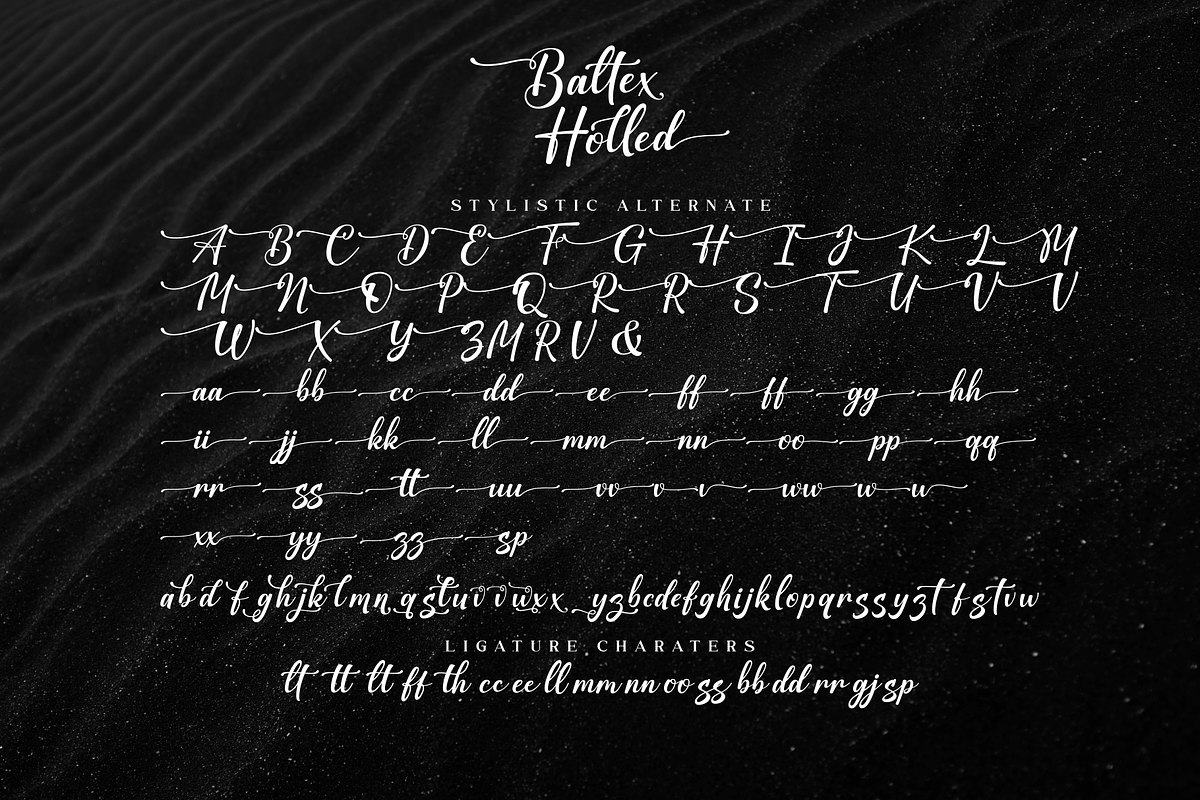 Baltex
Holled
STYLISTIC ALTERNATE
A B C D E F G H I J K L M
M N O P Q R R S T U V V
W X Y Z M R V &
aa bb cc dd ee ff ff gg hh
ii jj kk ll mm nn oo pp qq
rr ss tt uu vv v v ww w u
xx yy zz sp
abdfghjklmnqstuvvwxx_yzbcdefghijklopqrssyztfstvw
LIGATURE CHARATERS
lt tt lt ff th cc ee ll mm nn oo ss bb dd rr gj sp